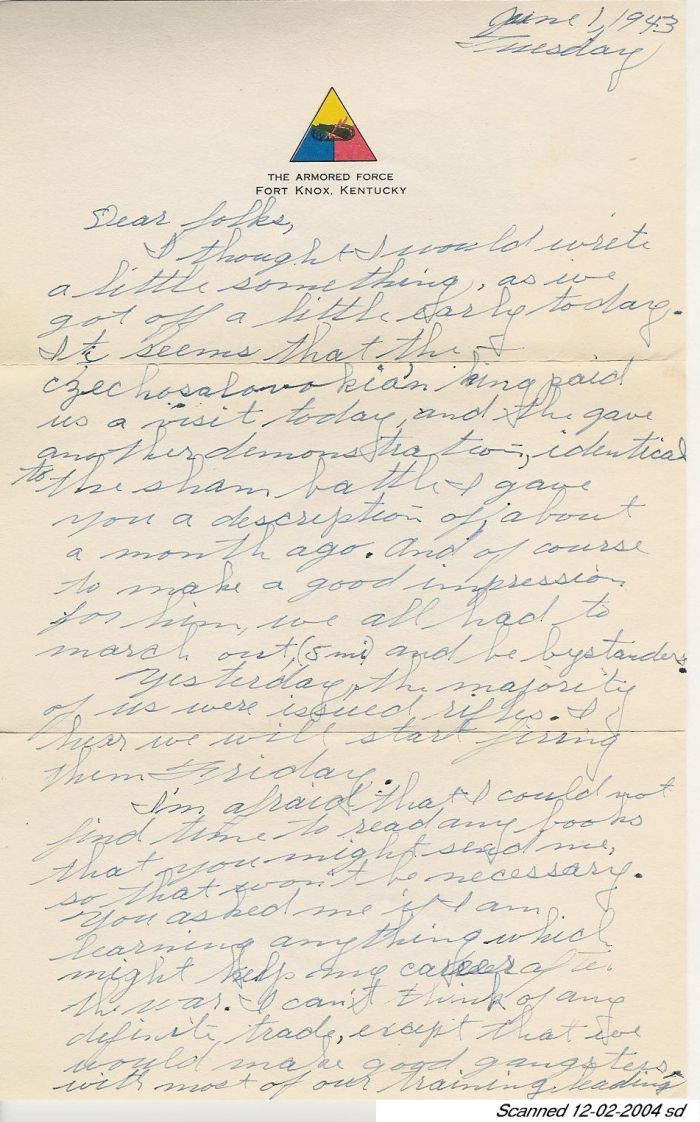 June 1, 1943
Tuesday
THE ARMORED FORCE
FORT KNOX, KENTUCKY
Dear folks,
I thought I would write
a little something, as we
got off a little early today.
It seems that the
czechosalovokian king paid
us a visit today, and the gave
another demonstration, identical
to the sham battle I gave
you a description of, about
a month ago. And of course
to make a good impression
for him, we all had to
march out, (5 mi) and be bystanders.
Yesterday, the majority
of us were issued rifles. I
hear we will start firring
them Friday.
I'm afraid that I could not
find time to read any books
that you might send me,
so that won't be necessary.
You asked me if I am
learning anything which
might help my career after
the war. I can't think of any
definite trade, except that we
would make good gangsters,
with most of our training leading
Scanned 12-02-2004 sd